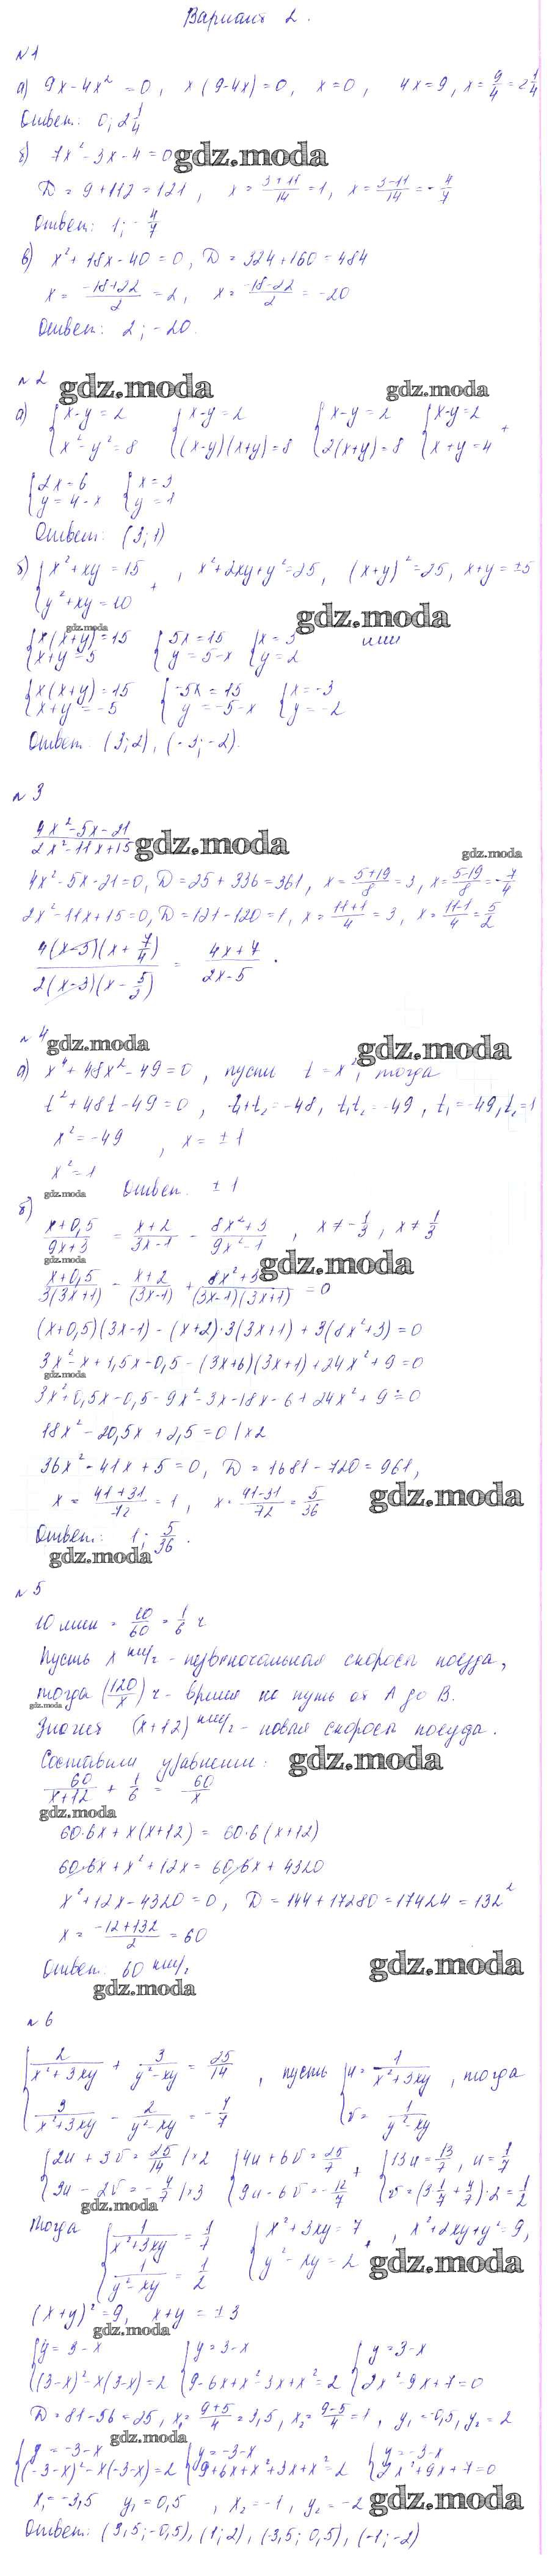 Вариант 2.
№1
а) 9x - 4x² = 0, x(9-4x)=0, x=0, 4x=9, x = 9/4 = 2 1/4
Ответ: 0; 2 1/4
б) 7x² - 3x - 4 = 0 gdz.moda
D = 9 + 112 = 121, x = (3+11)/14 = 1, x = (3-11)/14 = -4/7
Ответ: 1; -4/7
в) x² + 18x - 40 = 0, D = 324 + 160 = 484
x = (-18+22)/2 = 2, x = (-18-22)/2 = -20
Ответ: 2; -20.
№2 gdz.moda gdz.moda
а) {x-y=2 {x-y=2 {x-y=2 {x-y=2 +
{x²-y²=8 {(x-y)(x+y)=8 {2(x+y)=8 {x+y=4
{2x=6 {x=3
{y=4-x {y=1
Ответ: (3; 1)
б) {x²+xy=15 +, x²+2xy+y²=25, (x+y)²=25, x+y=±5
{y²+xy=10 gdz.moda
gdz.moda
{x(x+y)=15 {5x=15 {x=3 или
{x+y=5 {y=5-x {y=2
{x(x+y)=15 {-5x=15 {x=-3
{x+y=-5 {y=-5-x {y=-2
Ответ: (3; 2), (-3; -2).
№3
(4x²-5x-21)/(2x²-11x+15) gdz.moda
gdz.moda
4x²-5x-21=0, D=25+336=361, x=(5+19)/8=3, x=(5-19)/8=-7/4
2x²-11x+15=0, D=121-120=1, x=(11+1)/4=3, x=(11-1)/4=5/2
4(x-3)(x+7/4)/2(x-3)(x-5/2) = (4x+7)/(2x-5).
№4 gdz.moda gdz.moda
а) x⁴+48x²-49=0, пусть t=x², тогда
t²+48t-49=0, t₁+t₂=-48, t₁t₂=-49, t₁=-49, t₂=1
x²=-49, x=±1
x²=1
gdz.moda Ответ. ±1
б)
(x+0,5)/(9x+3) = (x+2)/(3x-1) - (8x²+3)/(9x²-1), x≠-1/3, x≠1/3
gdz.moda
(x+0,5)/3(3x+1) - (x+2)/(3x-1) + (8x²+3)/(3x-1)(3x+1) = 0
(x+0,5)(3x-1) - (x+2)·3(3x+1) + 3(8x²+3) = 0
3x²-x+1,5x-0,5-(3x+6)(3x+1)+24x²+9=0
gdz.moda
3x²+0,5x-0,5-9x²-3x-18x-6+24x²+9=0
18x²-20,5x+2,5=0 |×2
36x²-41x+5=0, D=1681-720=961,
x=(41+31)/72=1, x=(41-31)/72=5/36 gdz.moda
Ответ: 1; 5/36.
gdz.moda
№5
10 мин = 10/60 = 1/6 ч
Пусть x км/ч - первоначальная скорость поезда,
тогда (120/x) ч - время на путь от А до В.
gdz.moda
Значит (x+12) км/ч - новая скорость поезда.
Составили уравнение: gdz.moda
60/(x+12) + 1/6 = 60/x
gdz.moda
60·6x+x(x+12)=60·6(x+12)
60·6x+x²+12x=60·6x+4320
x²+12x-4320=0, D=144+17280=17424=132²
x=(-12+132)/2=60
Ответ. 60 км/ч gdz.moda
gdz.moda
№6
{2/(x²+3xy) + 3/(y²-xy) = 25/14, пусть {u=1/(x²+3xy), тогда
{3/(x²+3xy) - 2/(y²-xy) = -4/7 {v=1/(y²-xy)
{2u+3v=25/14 |×2 {4u+6v=25/7 + {13u=13/7, u=1/7
{3u-2v=-4/7 |×3 {9u-6v=-12/7 {v=(3·1/7+4/7):2=1/2
gdz.moda
Тогда {1/(x²+3xy)=1/7 {x²+3xy=7 +, x²+2xy+y²=9,
{1/(y²-xy)=1/2 {y²-xy=2 gdz.moda
(x+y)²=9, x+y=±3
gdz.moda
{y=3-x {y=3-x {y=3-x
{(3-x)²-x(3-x)=2 {9-6x+x²-3x+x²=2 {2x²-9x+7=0
D=81-56=25, x₁=(9+5)/4=3,5, x₂=(9-5)/4=1, y₁=-0,5, y₂=2
gdz.moda
{y=-3-x {y=-3-x {y=-3-x
{(-3-x)²-x(-3-x)=2 {9+6x+x²+3x+x²=2 {2x²+9x+7=0
x₁=-3,5 y₁=0,5, x₂=-1, y₂=-2 gdz.moda
Ответ: (3,5; -0,5), (1; 2), (-3,5; 0,5), (-1; -2)